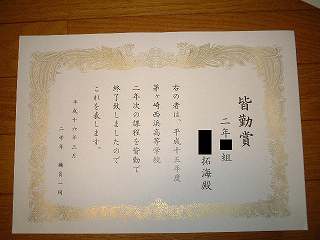 皆勤賞
二年 組
拓海殿
右の者は、平成十五年度
茅ヶ崎西浜高等学校
二年次の課程を皆勤で
終了致しましたので
これを表します。
平成十六年三月
二学年 職員一同